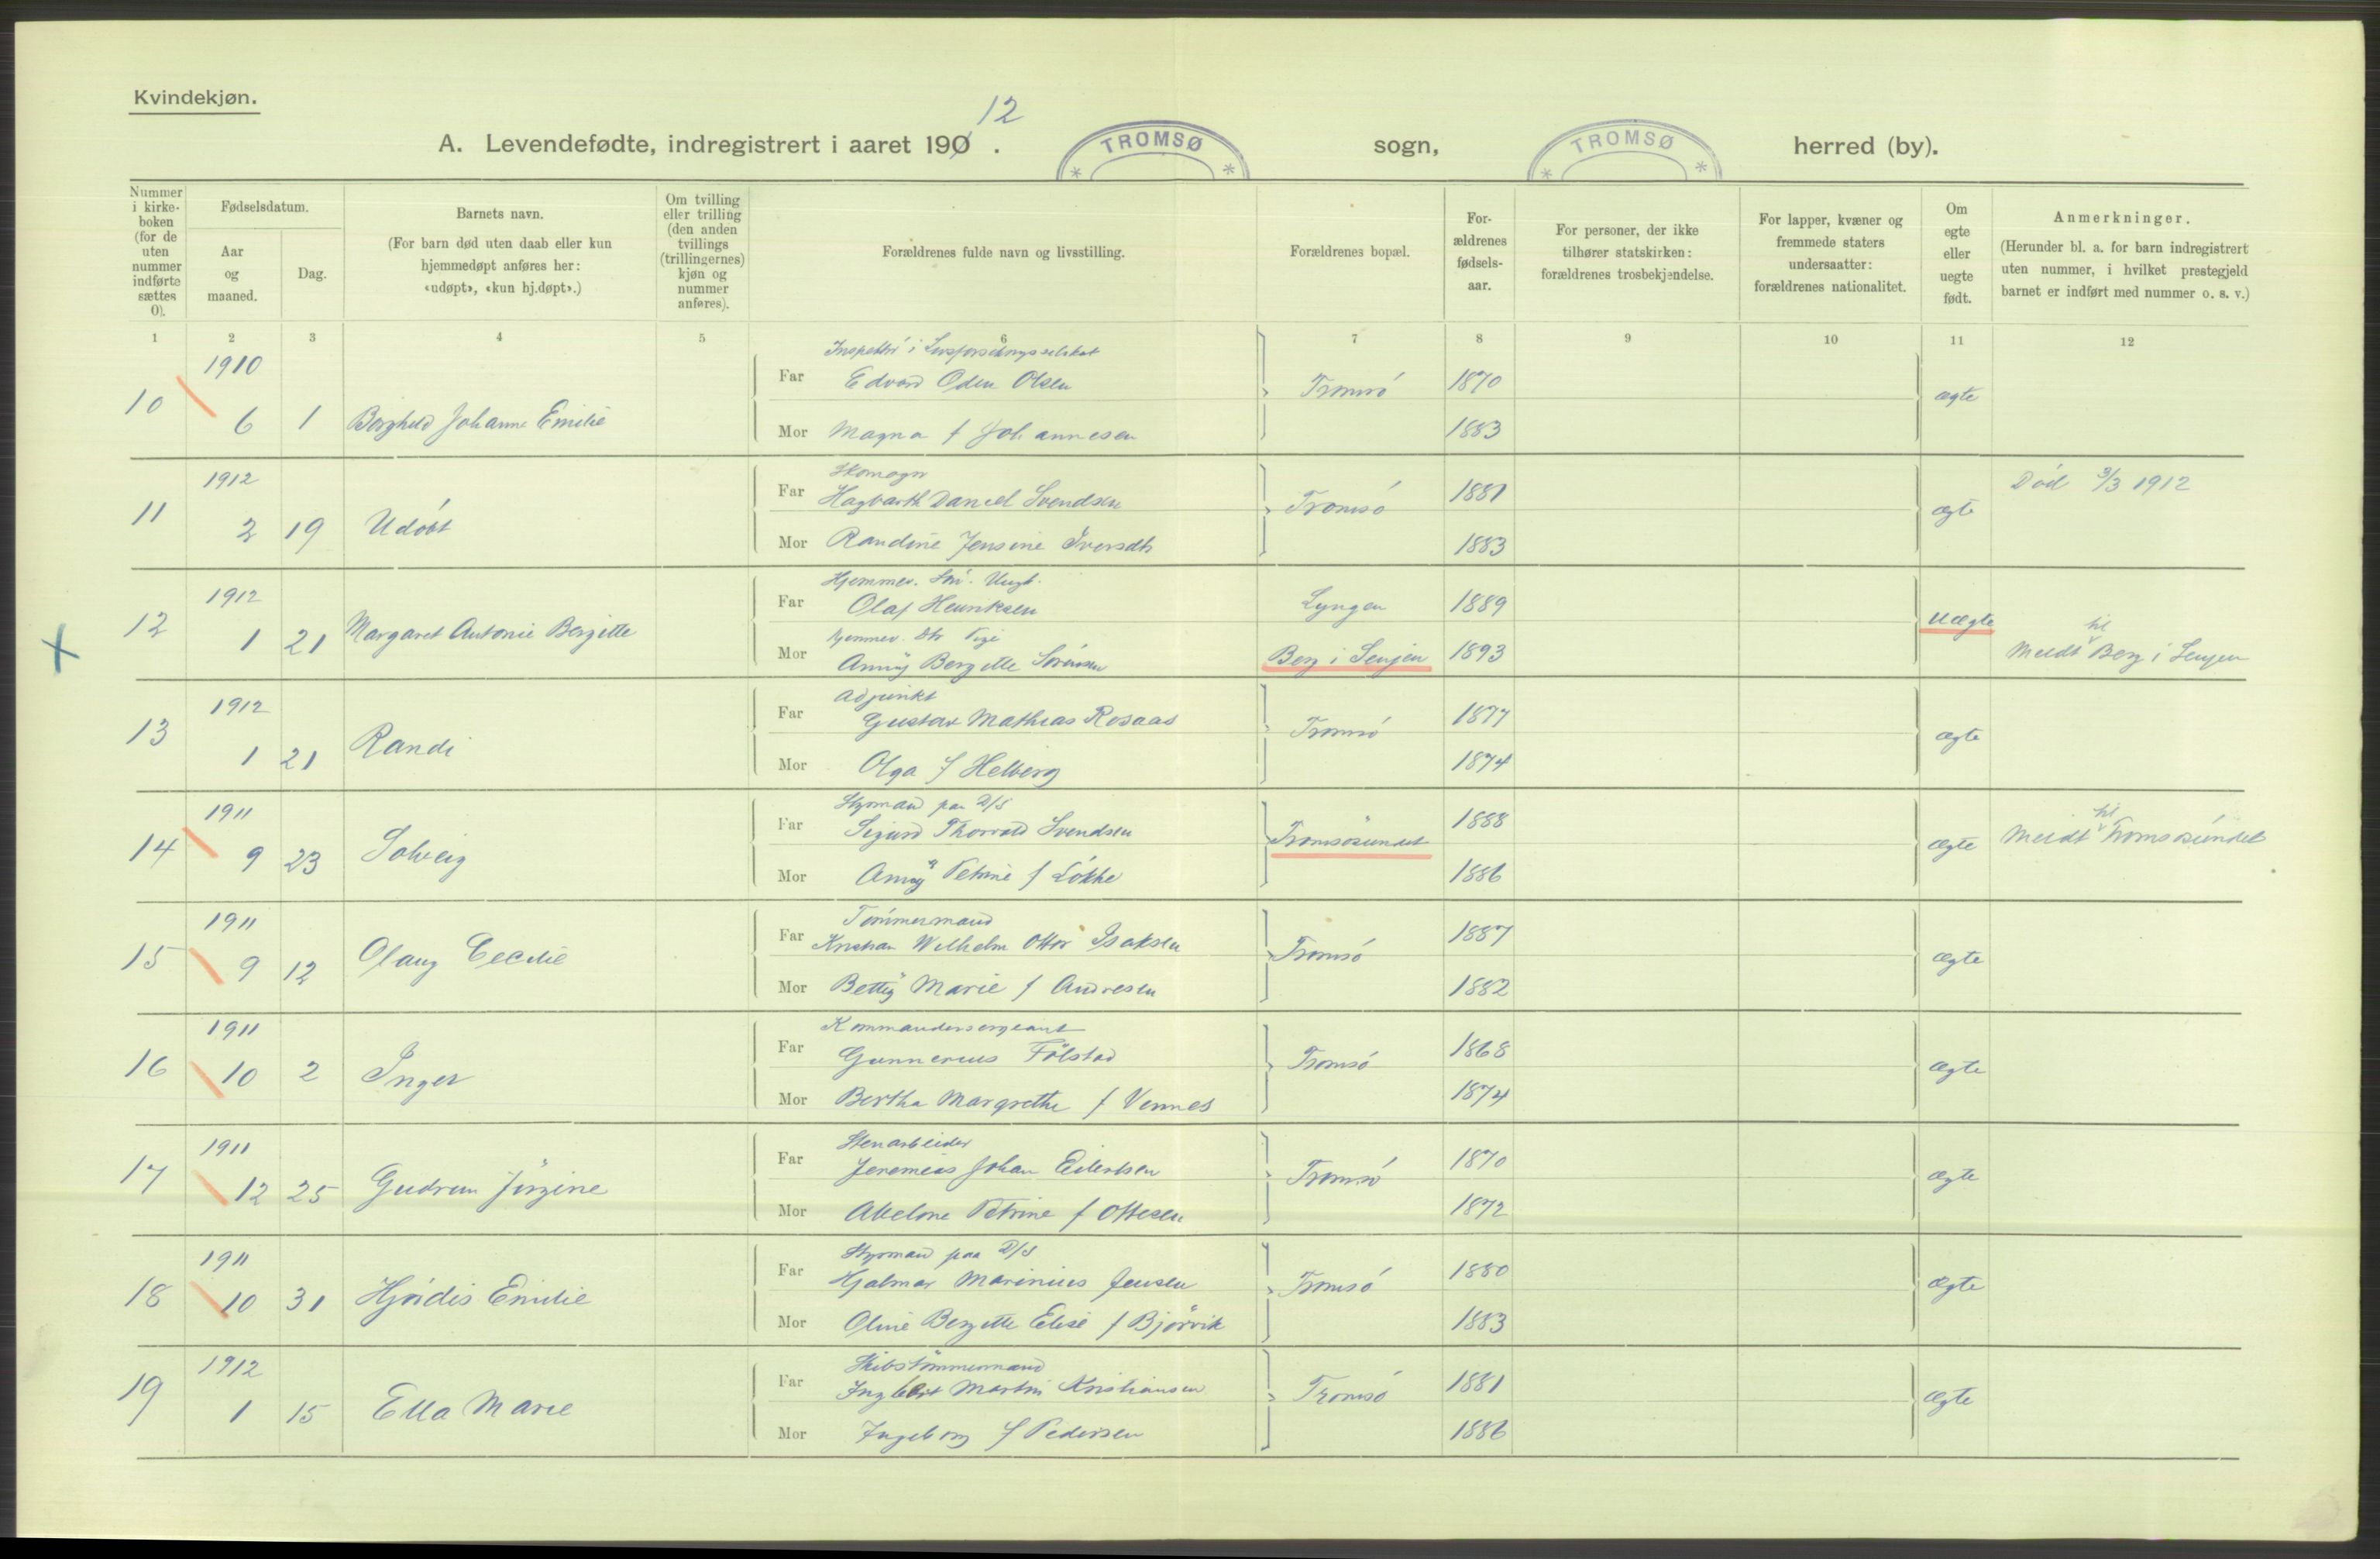 Kvindekjøn.
12
A. Levendefødte, indregistrert i aaret 190 . TROMSØ sogn, TROMSØ herred (by).
Nummer i kirke-boken (for de uten nummer indførte sættes 0).
Fødselsdatum.
Aar og maaned.
Dag.
Barnets navn.
(For barn død uten daab eller kun hjemmedøpt anføres her: «udøpt», «kun hj.døpt».)
Om tvilling eller trilling (den anden tvillings (trillingernes) kjøn og nummer anføres).
Forældrenes fulde navn og livsstilling.
Forældrenes bopæl.
For-ældrenes fødsels-aar.
For personer, der ikke tilhører statskirken: forældrenes trosbekjendelse.
For lapper, kvæner og fremmede staters undersaatter: forældrenes nationalitet.
Om egte eller uegte født.
Anmerkninger.
(Herunder bl. a. for barn indregistrert uten nummer, i hvilket prestegjeld barnet er indført med nummer o. s. v.)
1 2 3 4 5 6 7 8 9 10 11 12
1910
10 6 1 Borghild Johanne Emilie
Far Edvard Oden Olsen Tromsö 1870 ægte
Mor Magna f Johannesen 1883
1912
11 2 19 Udöbt
Skomager
Far Hagbarth Daniel Svendsen Tromsö 1881 ægte Död 3/3 1912
Mor Randine Jensine Iversdtr 1883
1912
12 1 21 Margaret Antonie Bergitte
Hjemmev. Sön. Ungk.
Far Olaf Henriksen Lyngen 1889 uægte
Hjemmev. Dtr Pige
Mor Anny Bergitte Sörensen Berg i Senjen 1893 Meldt til Berg i Senjen
1912
13 1 21 Randi
Adjunkt
Far Gustav Mathias Rosaas Tromsö 1877 ægte
Mor Olga f Helberg 1874
1911
14 9 23 Solveig
Styrmand paa D/S
Far Sigurd Thorvald Svendsen Tromsösundet 1888 ægte Meldt til Tromsösundet
Mor Anny Petrine f Lökke 1886
1911
15 9 12 Olaug Cecilie
Tömmermand
Far Kristian Wilhelm Ottor Isaksen Tromsö 1887 ægte
Mor Betty Marie f Andresen 1882
1911
16 10 2 Inger
Kommandersergeant
Far Gunnerius Fölstad Tromsö 1868 ægte
Mor Bertha Margrethe f Vennes 1874
1911
17 12 25 Gudrun Jörgine
Stenarbeider
Far Jeremias Johan Eilertsen Tromsö 1870 ægte
Mor Abelone Petrine f Ottesen 1872
1911
18 10 31 Hjördis Emilie
Styrmand paa D/S
Far Hjalmar Marinius Jensen Tromsö 1880 ægte
Mor Oline Bergitte Elise f Björvik 1883
1912
19 1 15 Ella Marie
Skibstömmermand
Far Ingbert Martin Kristiansen Tromsö 1881 ægte
Mor Ingeborg f Pedersen 1886